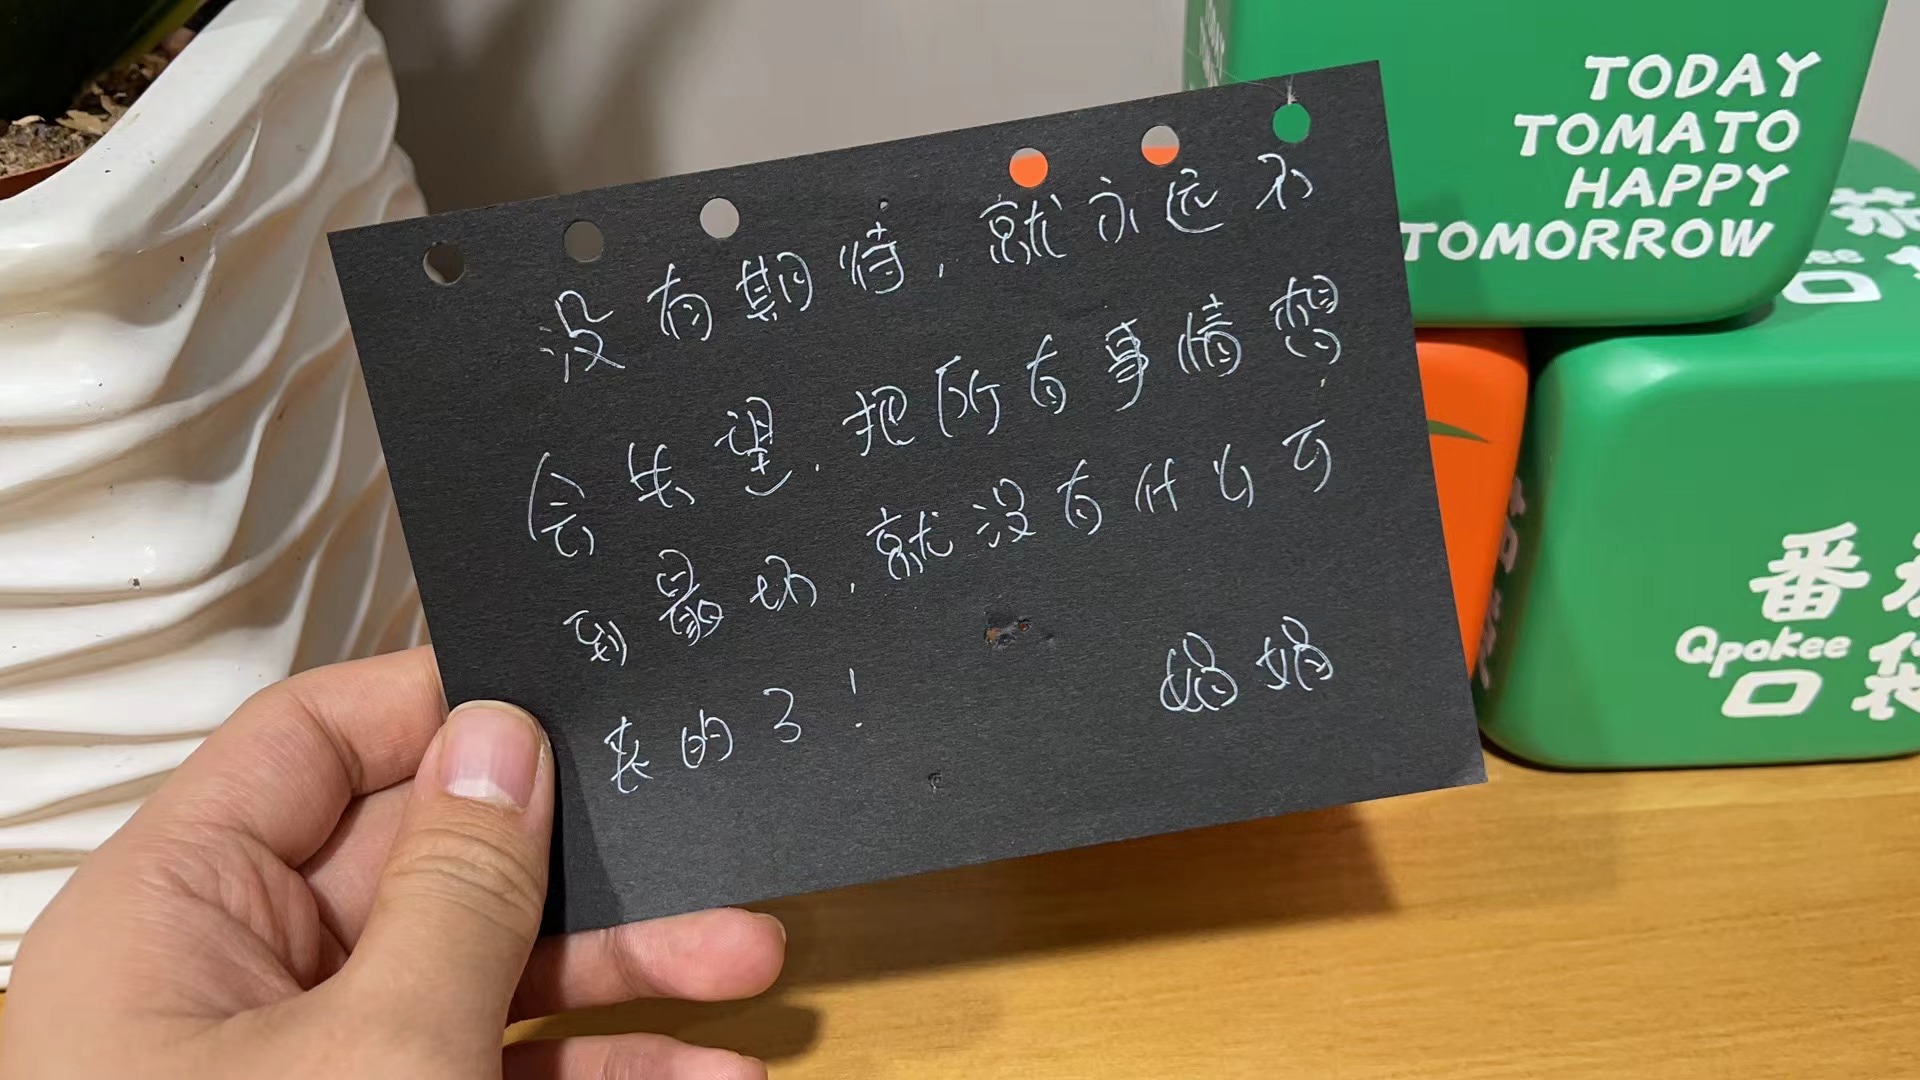 没有期待，就永远不
会失望，把所有事情想
到最坏，就没有什么可
丧的了！
娟娟
TODAY
TOMATO
HAPPY
TOMORROW
茄
口
番
Qpokee
口袋